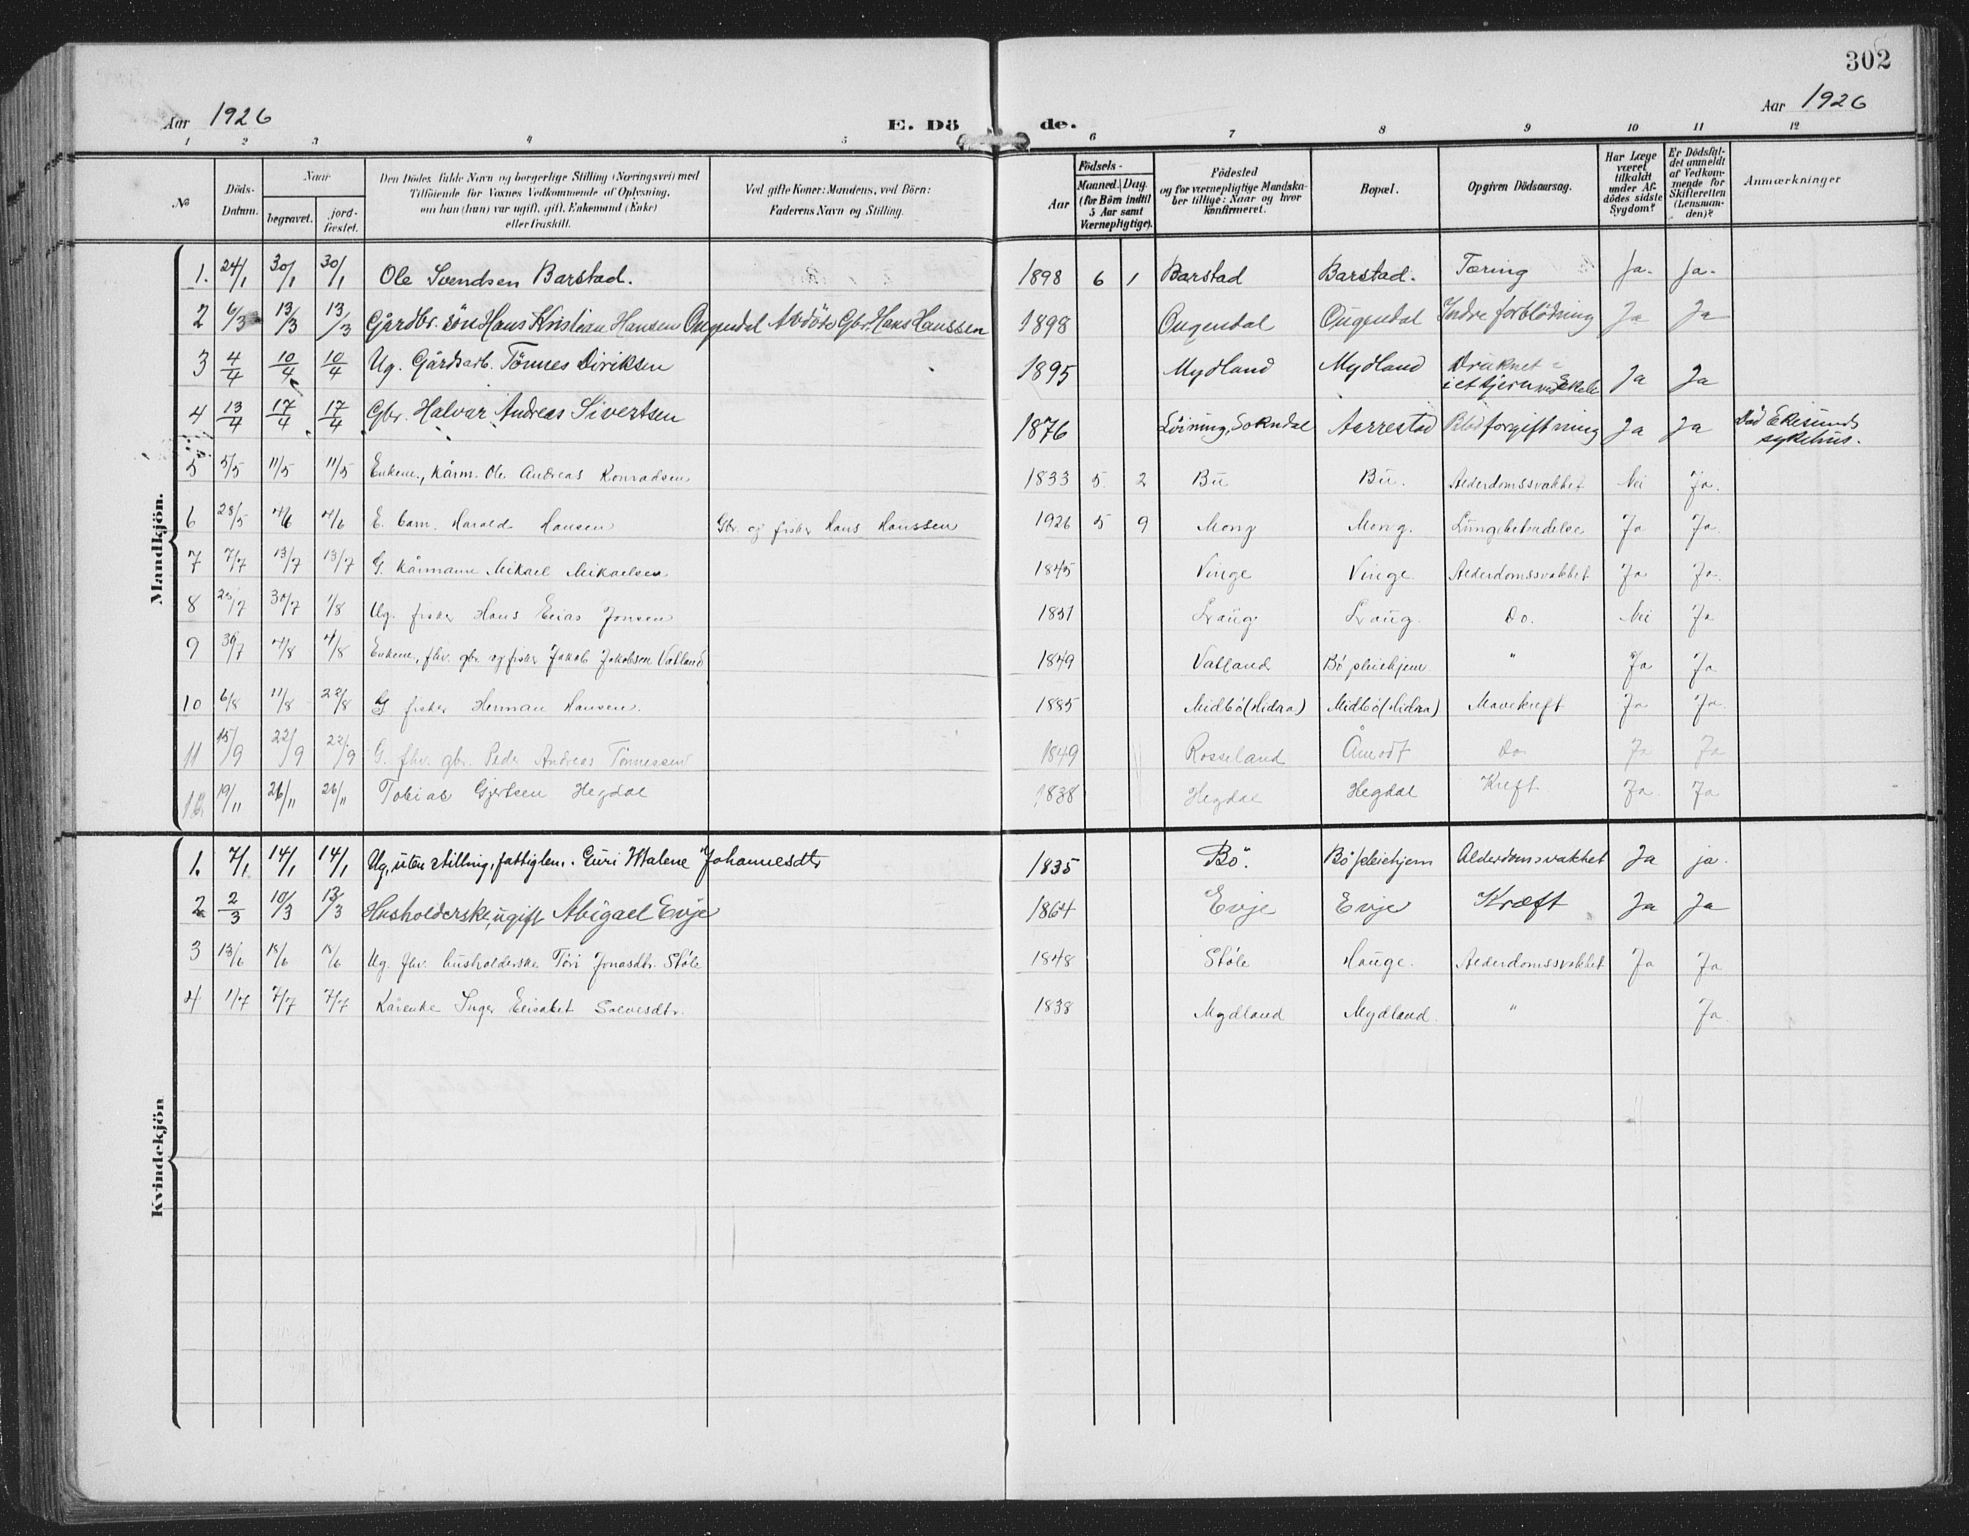 302
Aar 1926 E. Dö de. Aar 1926
1 2 3 4 5 6 7 8 9 10 11 12
№
Döds-Datum.
Naar
begravet.
jord-fæstet.
Den Dödes fulde Navn og borgerlige Stilling (Næringsvei) med
Tilföiende for Voxnes Vedkommende af Oplysning,
om han (hun) var ugift, gift, Enkemand (Enke)
eller fraskilt.
Ved gifte Koner: Mandens, ved Börn:
Faderens Navn og Stilling.
Födsels-
Aar
Maaned. Dag.
(for Börn indtil
5 Aar samt
Værnepligtige).
Födested
og for værnepligtige Mandska-
ber tillige: Naar og hvor
konfirmeret.
Bopæl.
Opgiven Dödsaarsag.
Har Læge
været
tilkaldt
under Af-
dödes sidste
Sygdom?
Er Dödsfal-
det anmeldt
af Vedkom-
mende for
Skifteretten
(Lensman-
den)?
Anmærkninger
Mandkjön.
1. 24/1 30/1 30/1 Ole Svendsen Barstad. 1898 6 1 Barstad Barstad. Tæring Ja. Ja.
2 6/3 13/3 13/3 Gårdbr. sön Hans Kristian Hansen Ougendal Avdöde Gbr. Hans Hanssen 1898 Ougendal Ougendal Indre forblödning Ja Ja
3 4/4 10/4 10/4 Ug. Gårdsarb. Tönnes Diriksen 1895 Mydland Mydland Druknet i et tjern ved Ekele Ja Ja
4 13/4 17/4 17/4 Gbr. Halvar Andreas Sivertsen 1876 Löining, Sokndal Aarrestad Blodforgiftning Ja Ja Död Ekesunds sykehus.
5 5/5 11/5 11/5 Enkem., kårm. Ole Andreas Konradsen 1833 5 2 Bu Bu. Alderdomssvakhet Nei Ja.
6 28/5 4/6 4/6 E. barn Harald Hansen Gbr. og fisker Hans Hanssen 1926 5 9 Mong Mong. Lungebetændelse Ja Ja.
7 7/7 13/7 13/7 G. kårmann Mikael Mikaelsen 1845 Vinge Vinge. Alderdomssvakhet Ja Ja.
8 30/7 1/8 Ug. fisker Hans Elias Jonsen 1851 Do. Nei Ja
9 30/7 4/8 4/8 Enkem., fhv. gbr. og fisker Jakob Jakobsen Vatland 1849 Vatland Bö pleiehjem " Ja Ja.
10 6/8 11/8 22/8 G fisker Herman Hansen. 1885 Midbö (Hidra) Midbö (Hidra) Mavekreft Ja Ja.
11 15/9 22/9 22/9 G. fhv. gbr. Peder Andreas Tönnessen 1849 Rosseland Åmodt Do Ja Ja
12. 19/11 26/11 26/11 Tobias Gjertsen Hegdal 1838 Hegdal Hegdal Kreft Ja. Ja
Kvindekjön
1. 7/1 14/1 14/1 Ug, uten stilling, fattiglem. Guri Malene Johannesdtr 1835 Bö. Bö pleiehjem Alderdomsvakhet Ja ja.
2 2/3 10/3 13/3 Husholderske, ugift Abigael Evje 1864 Evje Evje Kræft Ja Ja
3 13/6 18/6 18/6 Ug. fhv. husholderske Tori Jonasdtr. Støle 1848 Støle Hauge. Alderdomssvakhet Ja Ja
4 1/7 7/7 7/7 Kårenke Inger Elisabet Solvesdtr. 1838 Mydland Mydland. " Ja